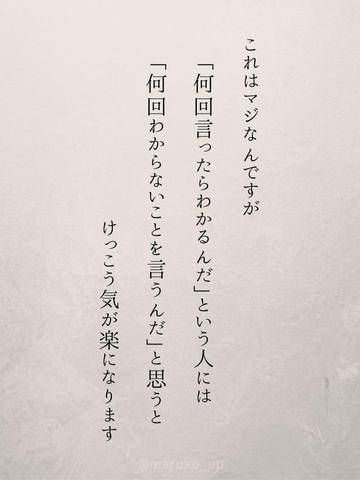 これはマジなんですが
「何回言ったらわかるんだ」という人には
「何回わからないことを言うんだ」と思うと
けっこう気が楽になります
@maruko_up